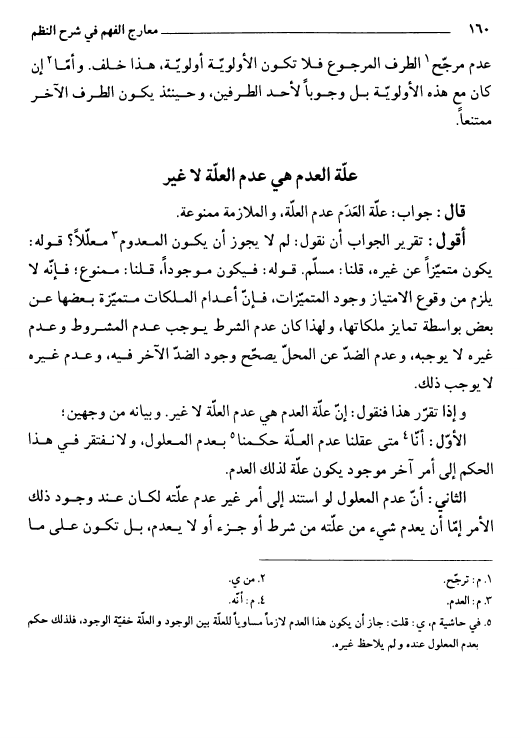 ١٦٠ معارج الفهم في شرح النظم
عدم مرجّح١ الطرف المرجوع فـلا تكون الأولويّة أولويّة، هـذا خلف. وأمّا٢ إن
كان مع هذه الأولويّـة بـل وجـوبـاً لأحـد الطـرفين، وحـينئذ يكـون الطـرف الآخـر
ممتنعاً.
علّة العدم هي عدم العلّة لا غير
قال : جواب: علّة العَدَم عدم العلّة، والملازمة ممنوعة.
أقول : تقرير الجواب أن نقول: لم لا يجوز أن يكون المـعدوم٣ مـعلّلاً؟ قـوله:
يكون متميّزاً عن غيره، قلنا: مسلّم. قوله: فـيكون مـوجوداً، قـلنا: مـمنوع؛ فإنّه لا
يلزم من وقوع الامتياز وجود المتميّزات، فـإنّ أعدام المـلكات متـميّزة بـعضها عـن
بعض بواسطة تمايز ملكاتها، ولهذا كان عدم الشرط يـوجب عـدم المشـروط وعـدم
غيره لا يوجبه، وعدم الضدّ عن المحلّ يصحّح وجود الضدّ الآخر فـيه، وعـدم غـيره
لا يوجب ذلك.
و إذا تقرّر هذا فنقول: إنّ علّة العدم هي عدم العلّة لا غير. وبيانه من وجهين؛
الأوّل : أنّا٤ متى عقلنا عدم العلّـة حكـمنا٥ بـعدم المـعلول، ولانـفتقر فـي هـذا
الحكم إلى أمر آخر موجود يكون علّة لذلك العدم.
الثاني : أنّ عدم المعلول لو استند إلى أمر غير عدم علّته لكـان عـند وجـود ذلك
الأمر إمّا أن يعدم شيء من علّته من شرط أو جـزء أو لا يـعدم، بـل تكون عـلى مـا
١. م: ترجّح. ٢. من ي.
٣. م: العدم. ٤. م: أنّه.
٥. في حاشية م، ي: قلت: جاز أن يكون هذا العدم لازماً مساوياً للعلّة بين الوجود والعلّة خفيّة الوجود، فلذلك حكم
بعدم المعلول عنده ولم يلاحظ غيره.